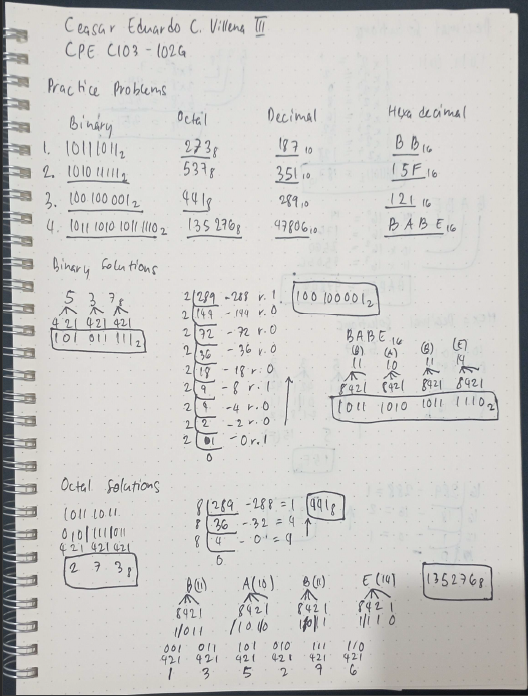 Ceasar Eduardo C. Villena III
CPE C103 - 102G
Practice Problems
Binary Octal Decimal Hexa decimal
1. 10111011₂ 273₈ 187₁₀ BB₁₆
2. 101011111₂ 537₈ 351₁₀ 15F₁₆
3. 100 100 001₂ 441₈ 289₁₀ 121₁₆
4. 1011 1010 1011 1110₂ 135 276₈ 47806₁₀ BABE₁₆
Binary Solutions
5 3 7₈
421 421 421
101 011 111₂
2 289 - 288 r. 1
2 144 - 144 r. 0
2 72 - 72 r. 0
2 36 - 36 r. 0
2 18 - 18 r. 0
2 9 - 8 r. 1
2 4 - 4 r. 0
2 2 - 2 r. 0
2 1 - 0 r. 1
0
100 100001₂
BABE₁₆
(B) (A) (B) (E)
11 10 11 14
8421 8421 8421 8421
1011 1010 1011 1110₂
Octal Solutions
1011 1011
010|111|011
421 421 421
2 7 3₈
8 289 - 288 = 1
8 36 - 32 = 4
8 4 - 0 = 4
0
441₈
B(11) A(10) B(11) E(14)
8421 8421 8421 8421
1/011 1/10 1/0 1/0/11 1/110
001 011 101 010 111 110
421 421 421 421 421 421
1 3 5 2 7 6
135276₈